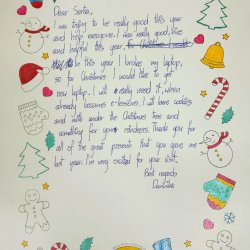 Dear Santa,
I was trying to be really good this year
and help everyone. I was really good, nice
and helpful this year,
in this year I broke my laptop,
so for Christmas I would like to get
new laptop. I will really need it, when
already becomes e-lessons. I will leave cookies
and milk under the Christmas tree and
something for your reindeers. Thank you for
all of the great presents that you gave me
last year. I'm very excited for your visit.
Best regards